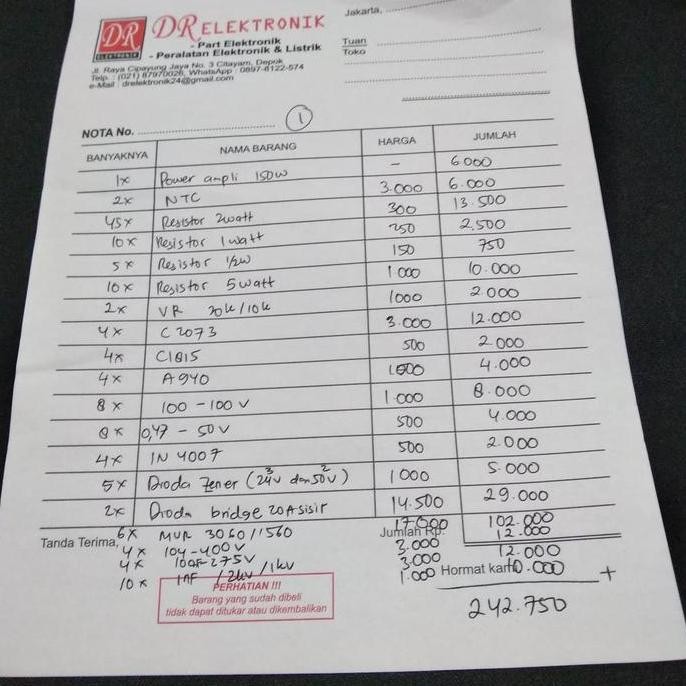 DR DR ELEKTRONIK
ELEKTRONIK
- Part Elektronik
- Peralatan Elektronik & Listrik
Jl. Raya Cipayung Jaya No. 3 Citayam, Depok
Telp. : (021) 87970026, WhatsApp : 0897-8122-574
e-Mail : drelektronik24@gmail.com
Jakarta,
Tuan
Toko
NOTA No. 1
BANYAKNYA NAMA BARANG HARGA JUMLAH
1x Power ampli 150w - 6000
2x NTC 3.000 6.000
45x Resistor 2watt 300 13.500
10x Resistor 1watt 250 2.500
5x Resistor 1/2w 150 750
10x Resistor 5watt 1.000 10.000
2x VR 20k/10k 1000 2.000
4x C2073 3.000 12.000
4x C1815 500 2.000
4x A940 1.000 4.000
8x 100-100v 1.000 8.000
8x 0,47-50v 500 4.000
4x IN 4007 500 2.000
5x Dioda Zener (24v 3 dan 50v 2) 1000 5.000
2x Dioda bridge 20A sisir 14.500 29.000
6x MUR 3060/1560 17.000 102.000
4x 104-400v 3.000 12.000
4x 275v 3.000 12.000
10x 1nF /2kv/1kv 1.000 10.000 +
Tanda Terima, Jumlah Rp.
Hormat kami
242.750
PERHATIAN !!!
Barang yang sudah dibeli
tidak dapat ditukar atau dikembalikan